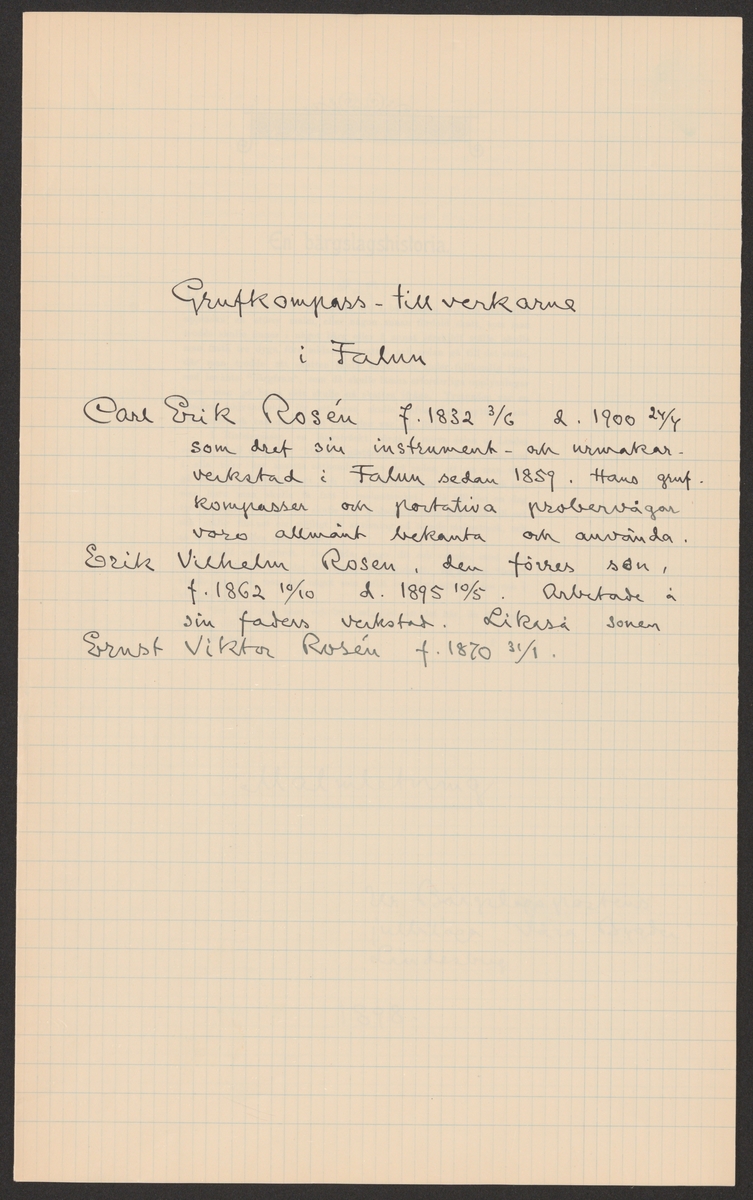 Grufkompass-tillverkarne
i Falun
Carl Erik Rosén f. 1832 3/6 d. 1900 24/4
som dref sin instrument- och urmakar-
verkstad i Falun sedan 1859. Hans gruf-
kompasser och portativa probervågar
voro allmänt bekanta och använda.
Erik Vilhelm Rosen, den förres son,
f. 1862 10/10 d. 1895 10/5. Arbetade å
sin faders verkstad. Likaså sonen
Ernst Viktor Rosén f. 1870 31/1.